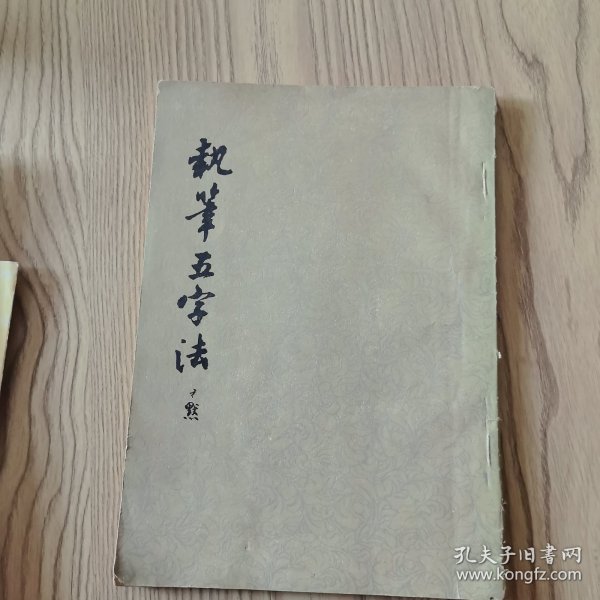 執筆五字法
尹默
孔夫子旧書网
www.kongfz.com